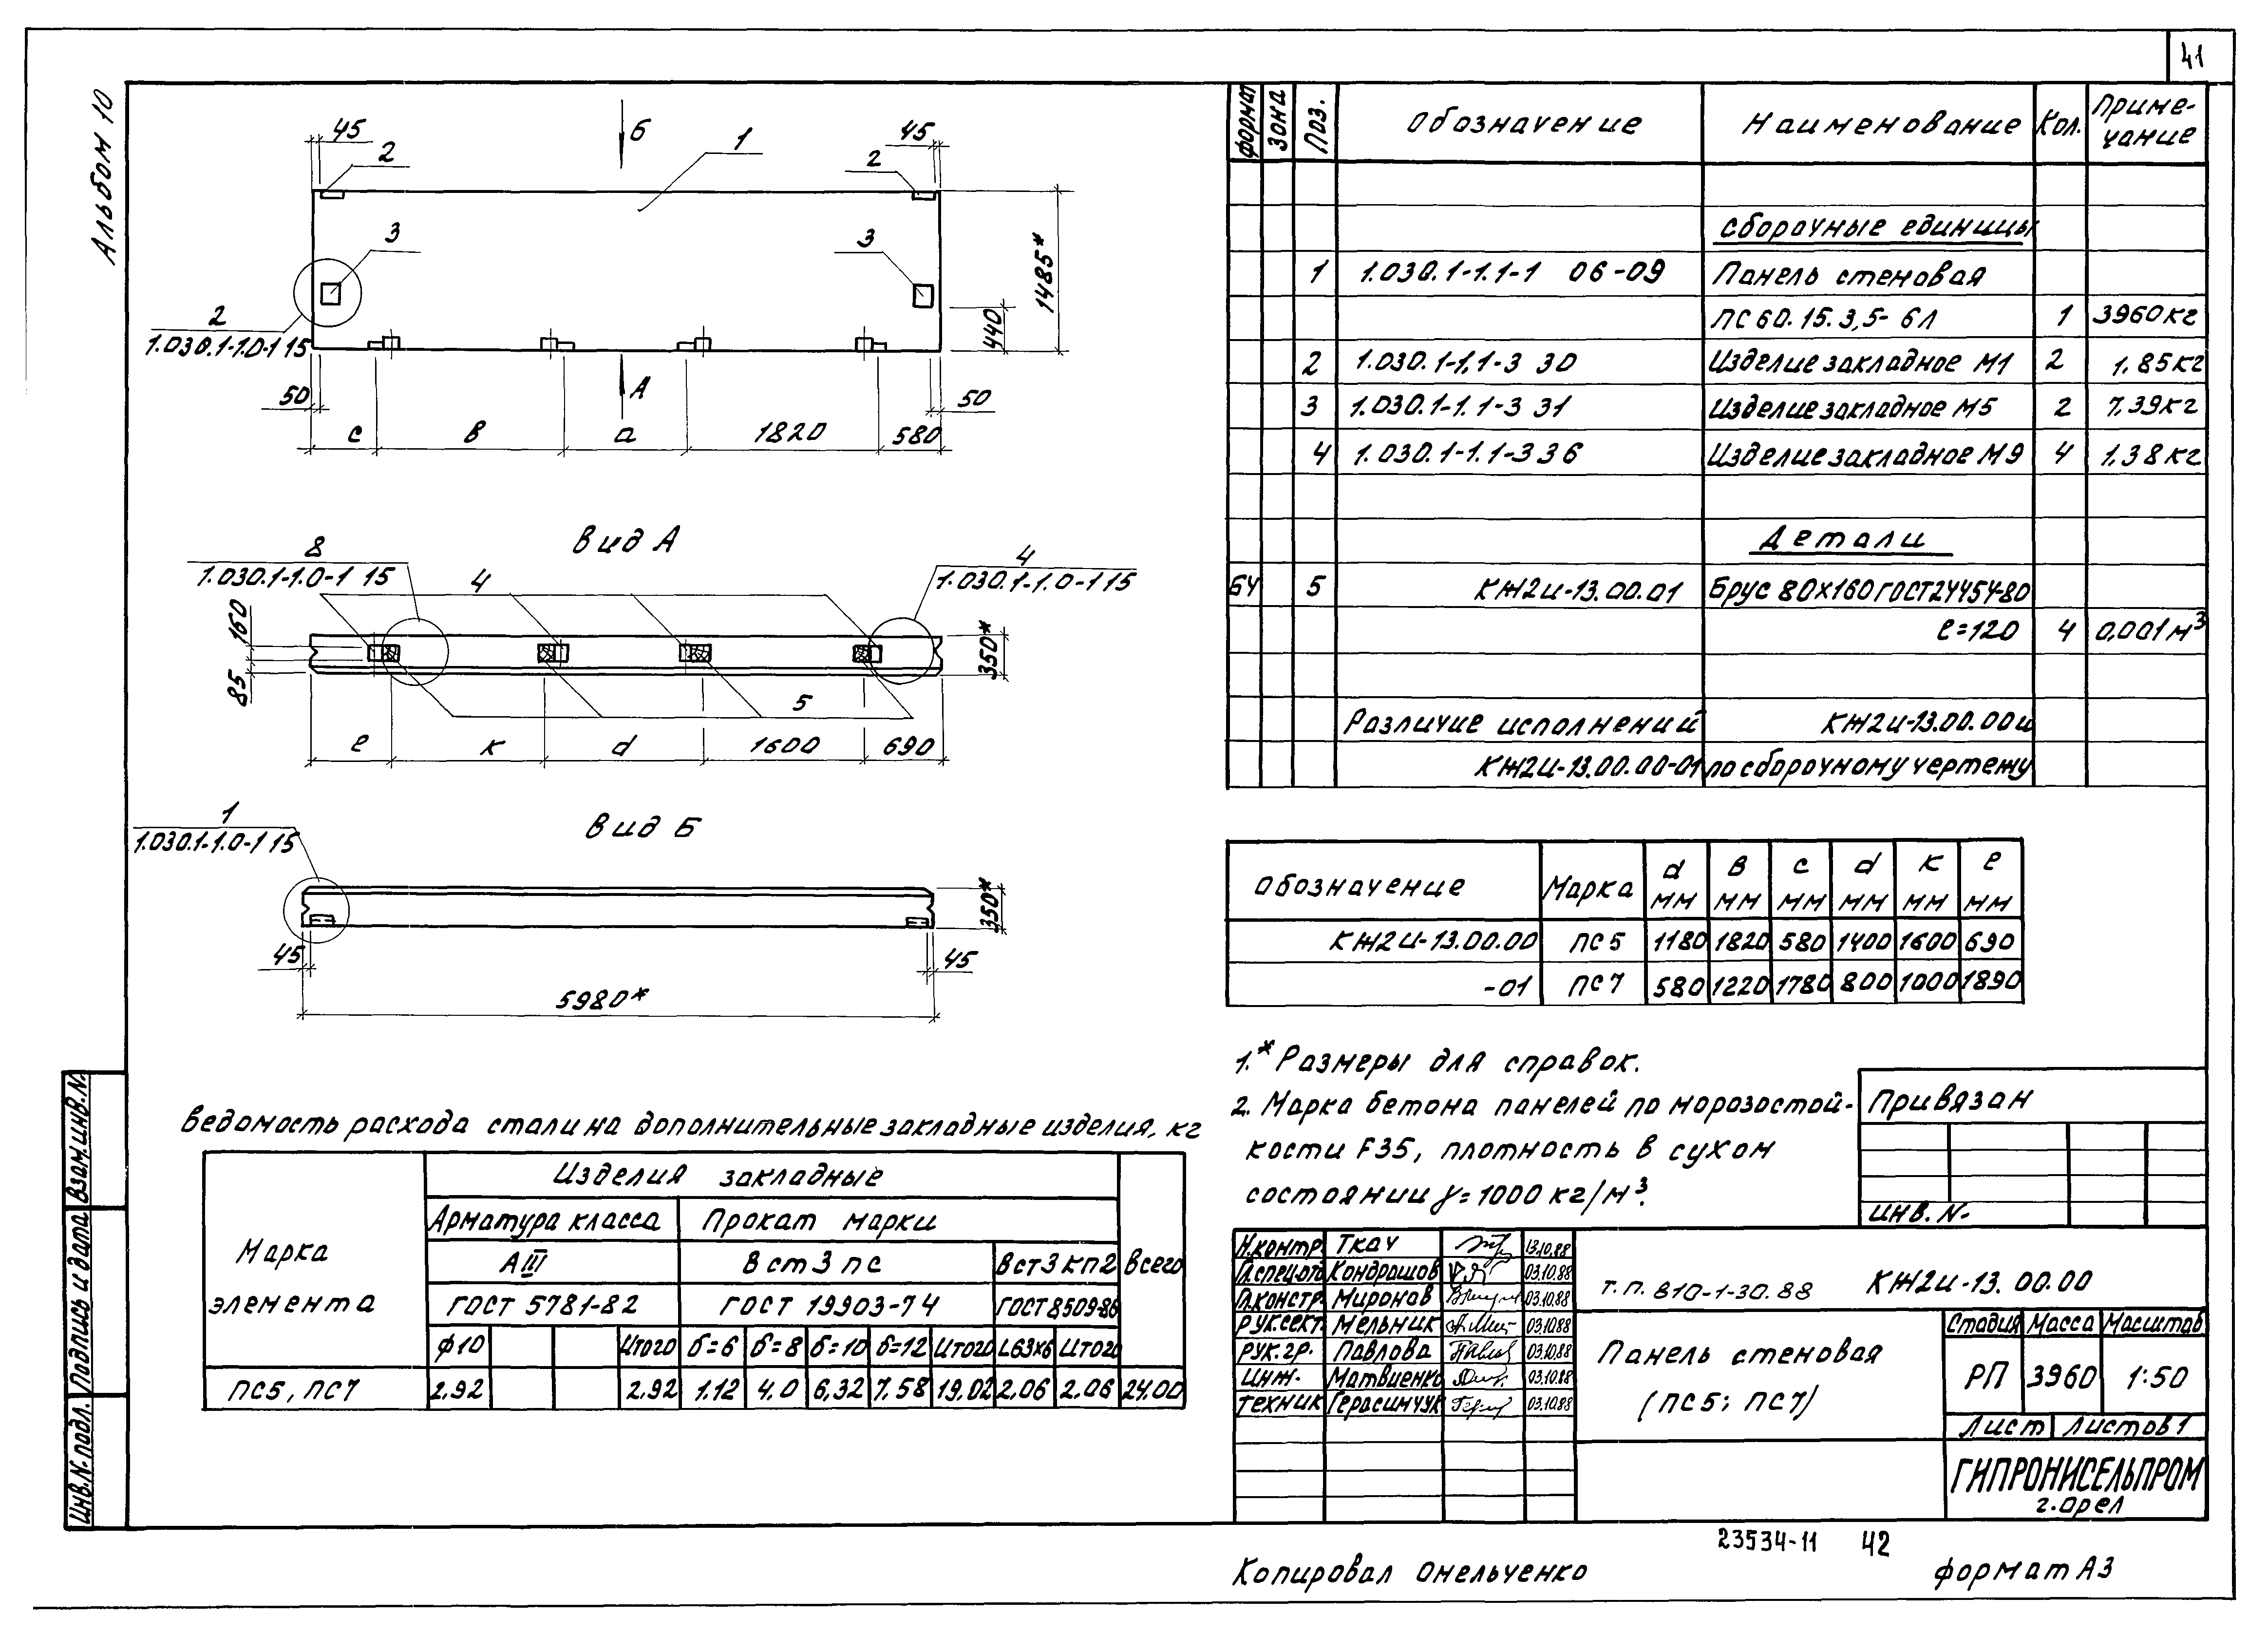 41
Альбом 10
45
Б
1
45
2
2
3
3
1485*
440
2
1.030.1-1.0-1 15
50
А
50
с
в
а
1820
580
Вид А
8
1.030.1-1.0-1 15
4
4
1.030.1-1.0-1 15
160
85
350*
5
е
к
d
1600
690
Вид Б
1
1.030.1-1.0-1 15
350*
45
45
5980*
Ведомость расхода стали на дополнительные закладные изделия, кг
Марка элемента
Изделия закладные
Всего
Арматура класса
Прокат марки
АIII
Вст3пс
Вст3кп2
ГОСТ 5781-82
ГОСТ 19903-74
ГОСТ 8509-86
ф10 Итого б=6 б=8 б=10 б=12 Итого L63х6 Итого
ПС5, ПС7 2.92 2.92 1.12 4.0 6.32 7.58 19.02 2.06 2.06 24.00
Формат Зона Поз. Обозначение Наименование Кол. Примечание
Сборочные единицы
1 1.030.1-1.1-1 06-09 Панель стеновая
ПС60.15.3,5-6Л 1 3960кг
2 1.030.1-1.1-3 30 Изделие закладное М1 2 1.85кг
3 1.030.1-1.1-3 31 Изделие закладное М5 2 7.39кг
4 1.030.1-1.1-3 36 Изделие закладное М9 4 1.38кг
Детали
БЧ 5 КЖ2И-13.00.01 Брус 80х160 ГОСТ24454-80
е=120 4 0,001м³
Различие исполнений КЖ2И-13.00.00 и
КЖ2И-13.00.00-01 по сборочному чертежу
Обозначение Марка d мм в мм с мм d мм к мм е мм
КЖ2И-13.00.00 ПС5 1180 1820 580 1400 1600 690
-01 ПС7 580 1220 1780 800 1000 1890
1.* Размеры для справок.
2. Марка бетона панелей по морозостой-
кости F35, плотность в сухом
состоянии γ=1000 кг/м³.
Привязан
Инв. N.
Н.контр. Ткач 13.10.88
Гл.спец.отд Кондрашов 03.10.88
Гл.констр. Миронов 03.10.88
Рук.сект. Мельник 03.10.88
Рук.гр. Павлова 03.10.88
Инж. Матвиенко 03.10.88
Техник Герасимчук 03.10.88
т.п. 810-1-30.88 КЖ2И-13.00.00
Панель стеновая
(ПС5; ПС7)
Стадия Масса Масштаб
РП 3960 1:50
Лист Листов 1
ГИПРОНИСЕЛЬПРОМ
г. Орел
Взам.инв.N.
Подпись и дата
Инв.N.подл.
23534-11 42
Копировал Омельченко
формат А3